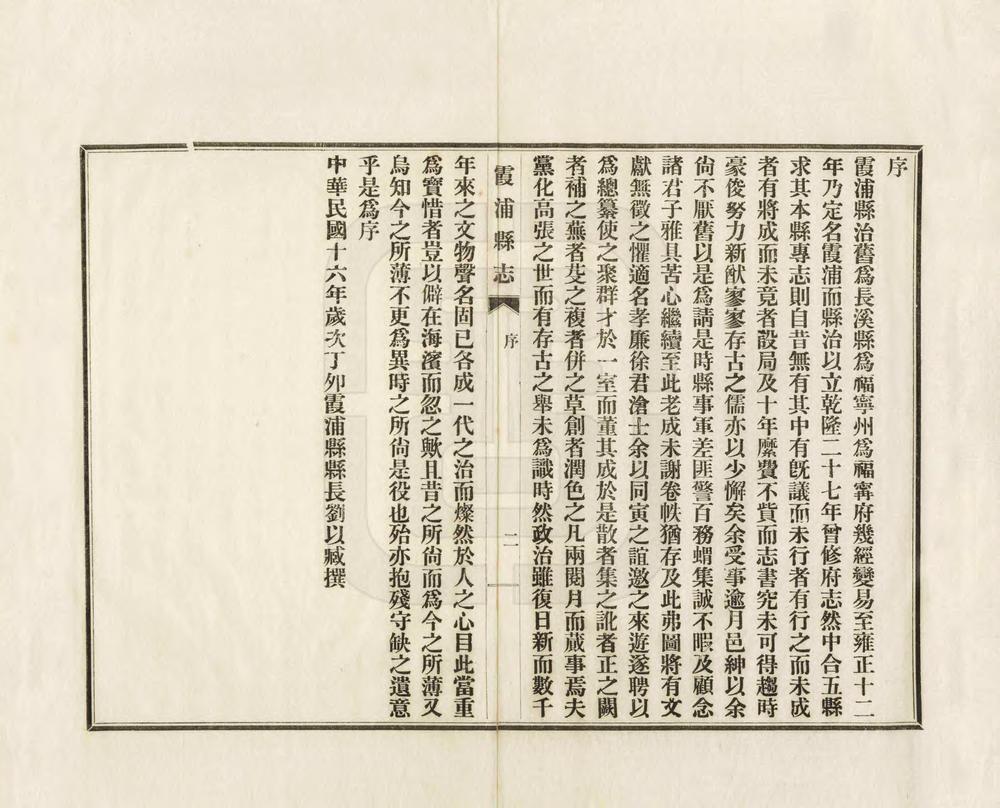 序
霞浦縣治舊爲長溪縣爲福寧州爲福寗府幾經變易至雍正十二
年乃定名霞浦而縣治以立乾隆二十七年曾修府志然中合五縣
求其本縣專志則自昔無有其中有旣議而未行者有行之而未成
者有將成而未竟者設局及十年縻費不貲而志書究未可得趨時
豪俊努力新猷寥寥存古之儒亦以少懈矣余受事逾月邑紳以余
尙不厭舊以是爲請是時縣事軍差匪警百務蝟集誠不暇及顧念
諸君子雅具苦心繼續至此老成未謝卷帙猶存及此弗圖將有文
獻無徵之懼適名孝廉徐君滄士余以同寅之誼邀之來遊遂聘以
爲總纂使之聚群才於一室而董其成於是散者集之訛者正之闕
者補之蕪者芟之複者併之草創者潤色之凡兩閱月而蕆事焉夫
黨化高張之世而有存古之舉未爲識時然政治雖復日新而數千
霞浦縣志
序
二
年來之文物聲名固已各成一代之治而燦然於人之心目此當重
爲寳惜者豈以僻在海濱而忽之歟且昔之所尙而爲今之所薄又
烏知今之所薄不更爲異時之所尙是役也殆亦抱殘守缺之遺意
乎是爲序
中華民國十六年歲次丁夘霞浦縣縣長劉以臧撰